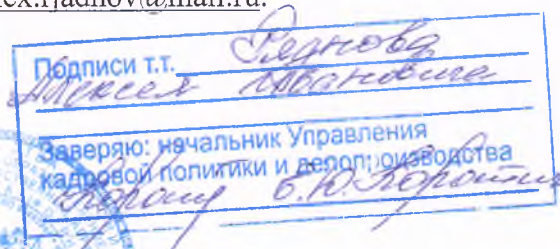 ex.rjadnov@mail.ru.
Подписи т.т. Ряднова
Алексея Ивановича
Заверяю: начальник Управления
кадровой политики и делопроизводства